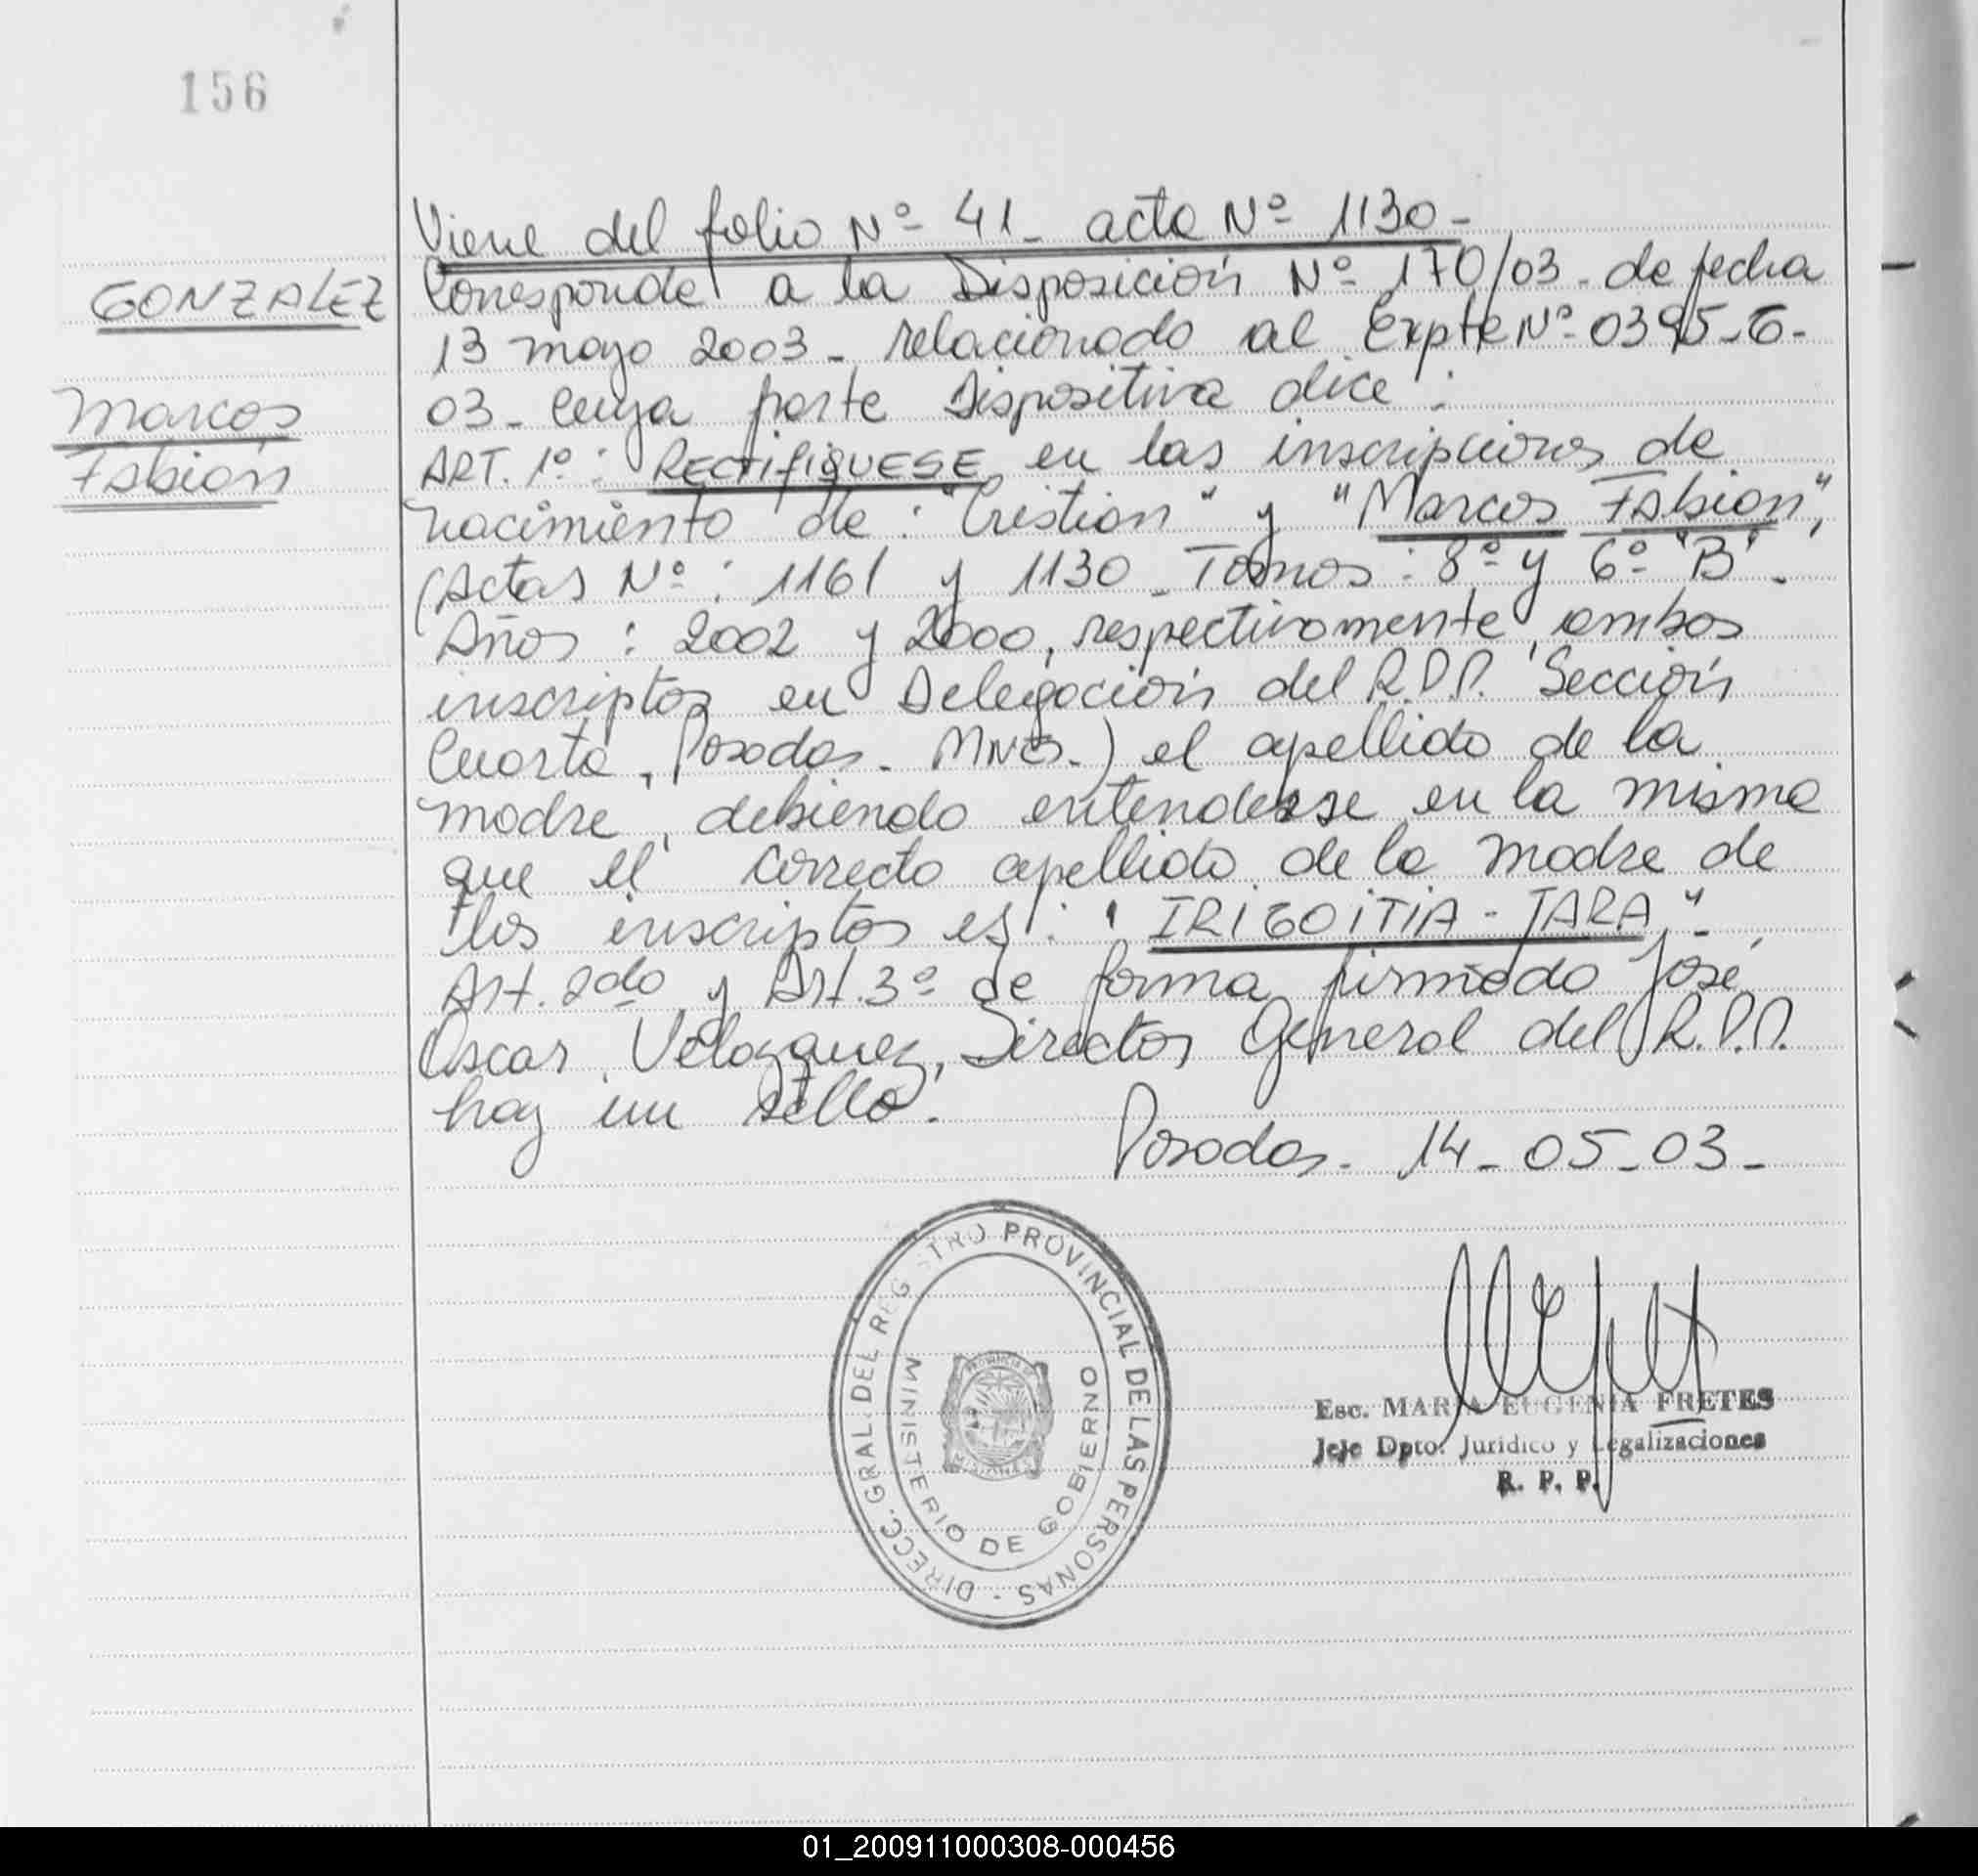 156
GONZALEZ
Marcos
Fabián
Viene del folio Nº 41- acta Nº 1130-
Corresponde a la Disposición Nº 170/03- de fecha
13 mayo 2003- relacionado al Expte Nº 0395-G-
03- cuya parte Dispositiva dice:
ART. 1º: RECTIFIQUESE en las inscripciones de
nacimiento de: "Cristian" y "Marcos Fabián",
(Actas Nº: 1161 y 1130- Tomos: 8º y 6º "B"-
Años: 2002 y 2000, respectivamente, ambos
inscriptos en Delegación del R.P.P. Sección
Cuarta, Posadas- MNES-) el apellido de la
madre, debiendo entenderse en la misma
que el correcto apellido de la madre de
los inscriptos es: "IRIGOITIA-JARA"-
Art. 2do y Art. 3º de forma, firmado José
Oscar Velazquez, Director General del R.P.P.
hay un sello.
Posadas- 14-05-03-
DIRECC. GRAL. DEL REGISTRO PROVINCIAL DE LAS PERSONAS -
MINISTERIO DE GOBIERNO
PROVINCIA DE
MISIONES
Esc. MARIA EUGENIA FRETES
Jefe Dpto. Jurídico y Legalizaciones
R. P. P.
01_200911000308-000456